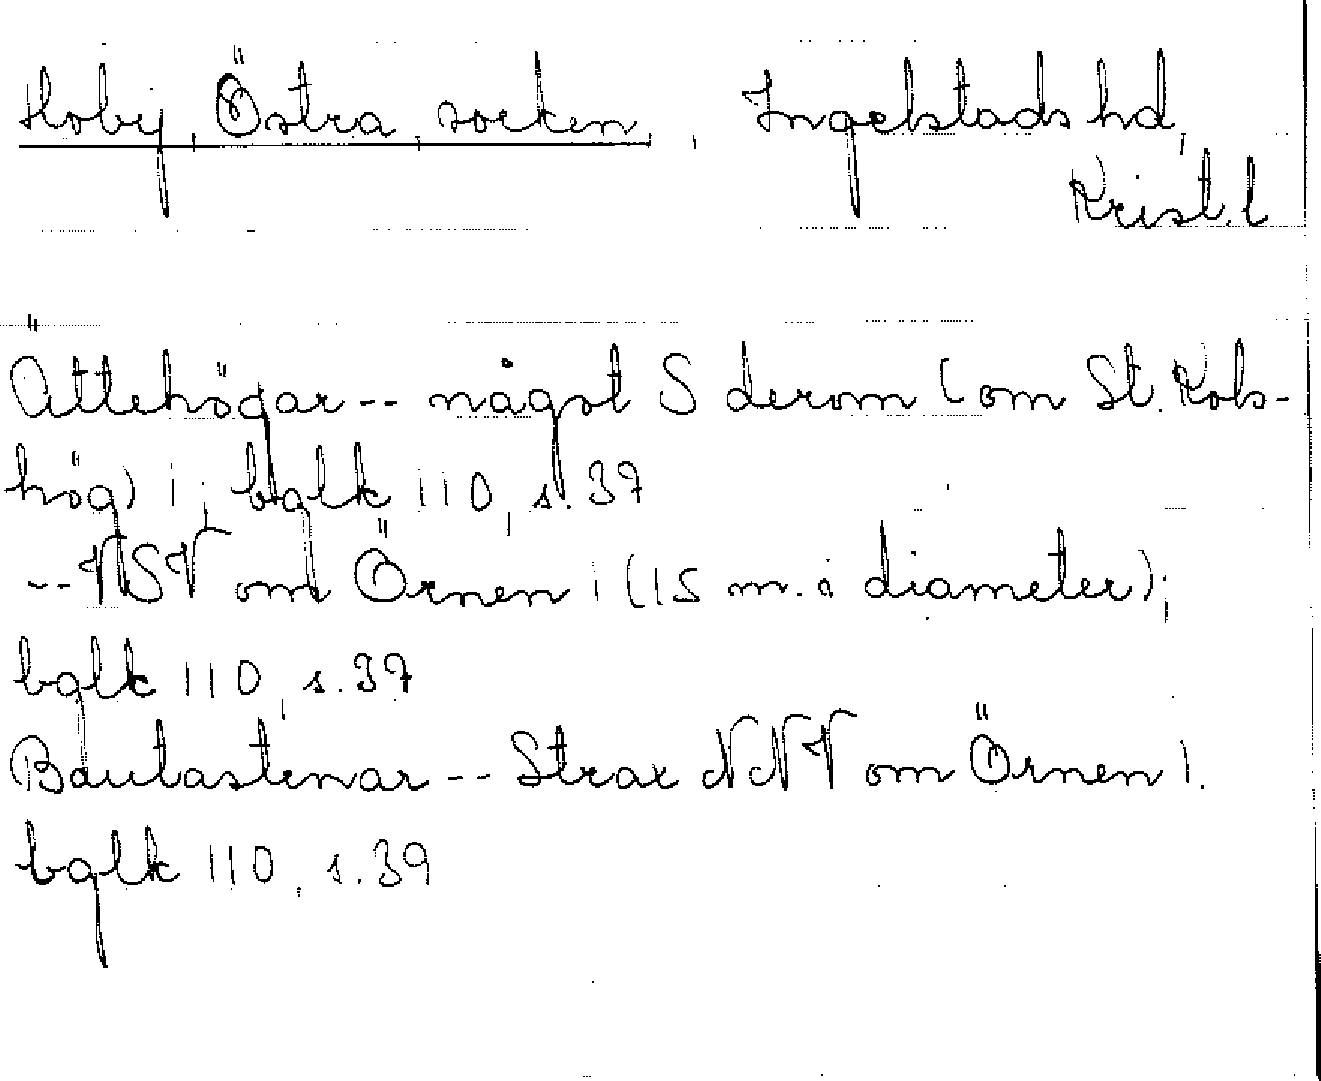 Hoby, Östra, socken, , Ingelstads hd,
Krist. l
Ättehögar -- något S derom (om St. Kols-
hög) 1; bglk 110, s. 37
-- VSV om Örnen 1 (15 m. i diameter);
bglk 110, s. 37
Bautastenar -- Strax NNV om Örnen 1.
bglk 110, s. 39